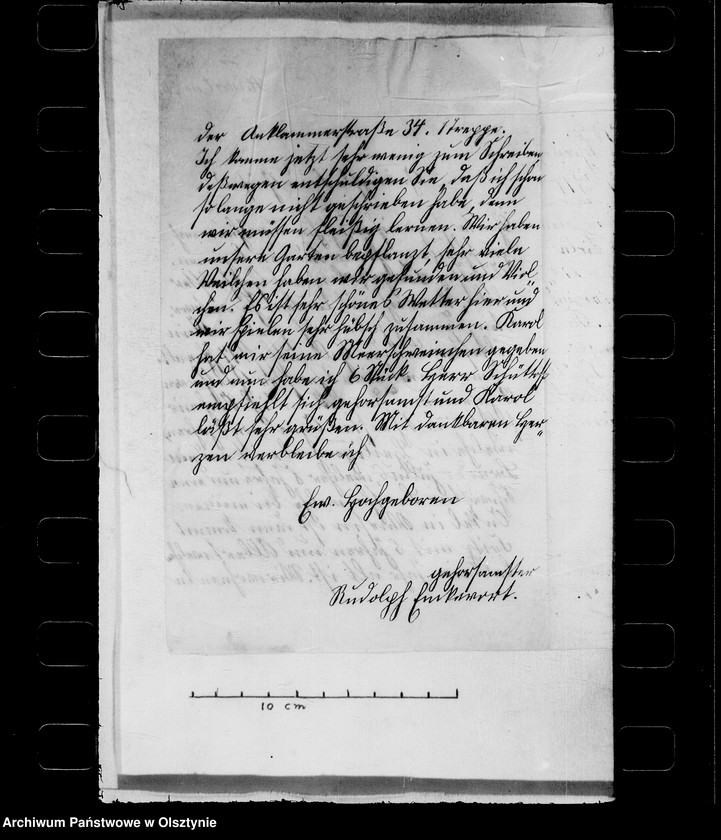 der Anklammerstraße 34. 1 Treppe.
Ich komme jetzt sehr wenig zum Schreiben
deßwegen entschuldigen Sie, daß ich schon
so lange nicht geschrieben habe, denn
wir müssen fleißig lernen. Wir haben
unsere Garten bepflanzt, sehr viele
Veilchen haben wir gefunden und Viol
chen. Es ist sehr schönes Wetter hier und
wir spielen sehr hübsch zusammen. Karol
hat mir seine Meerschweinchen gegeben
und nun habe ich 6 Stück. Herr
empfiehlt sich gehorsamst und Karol
läßt sehr grüßen. Mit dankbaren Her-
zen verbleibe ich
Ew. Hochgeboren
gehorsamster
Rudolph
10 cm
Archiwum Państwowe w Olsztynie